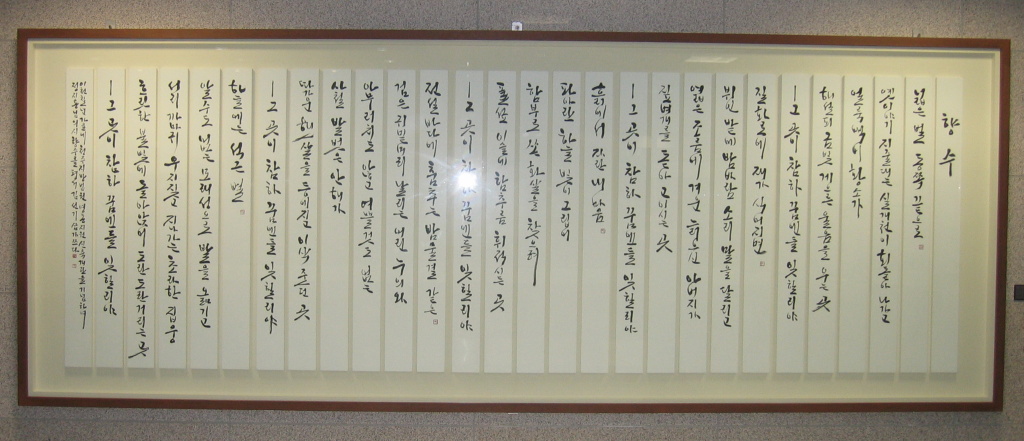 향수
넓은 벌 동쪽 끝으로
옛이야기 지줄대는 실개천이 회돌아 나가고
얼룩백이 황소가
해설피 금빛 게으른 울음을 우는 곳
ㅡ그 곳이 참하 꿈엔들 잊힐리야
질화로에 재가 식어지면
뷔인 밭에 밤바람 소리 말을 달리고
엷은 조름에 겨운 늙으신 아버지가
짚벼개를 돋아 고이시는 곳
ㅡ그 곳이 참하 꿈엔들 잊힐리야
흙에서 자란 내 마음
파아란 하늘 빛이 그립어
함부로 쏜 화살을 찾으려
풀섶 이슬에 함추름 휘적시든 곳
ㅡ그 곳이 참하 꿈엔들 잊힐리야
전설바다에 춤추는 밤물결 같은
검은 귀밑머리 날리는 어린 누의와
아무러치도 않고 여쁠것도 없는
사철 발벗은 안해가
따가운 해ㅅ살을 등에지고 이삭 줏던 곳
ㅡ그 곳이 참하 꿈엔들 잊힐리야
하늘에는 석근 별
알수도 없는 모래성으로 발을 옮기고
서리 까마귀 우지짖고 지나가는 초라한 집웅
흐릿한 불빛에 돌아앉어 도란도란거리는 곳
ㅡ그 곳이 참하 꿈엔들 잊힐리야